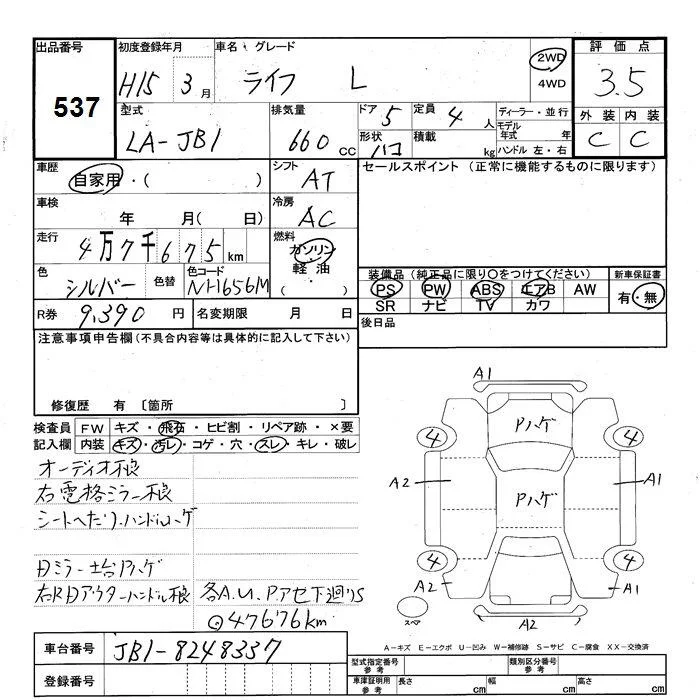 出品番号 初度登録年月 車名・グレード 評価点
537 H15 3月 ライフ L 2WD 4WD 3.5
型式 排気量 ドア 5 定員 4人 ディーラー・並行 外装 内装
LA-JB1 660cc 形状 ハコ 積載 kg モデル年式 年 ハンドル 左・右 C C
車歴 自家用・( ) シフト AT セールスポイント (正常に機能するものに限ります)
車検 年 月( 日) 冷房 AC
走行 4万7千675km 燃料 ガソリン 軽油 ( )
色 シルバー 色替 色コード NH656M
装備品(純正品に限り○をつけてください) 新車保証書
PS PW ABS エアB AW 有・無
SR ナビ TV カワ
R券 9,390円 名変期限 月 日 後日品
注意事項申告欄(不具合内容等は具体的に記入して下さい)
修復歴 有 〔箇所 〕
検査員 FW キズ・飛石・ヒビ割・リペア跡・×要
記入欄 内装 キズ・汚レ・コゲ・穴・スレ・キレ・破レ
オーディオ横痕
右電格ミラー不良
シートへたり、ハンドルハゲ
Dミラー土台Pハゲ
右RDアウターハンドル痕 各A.U.Pアセ下廻りS
◎47676km
車台番号 JB1-8248337
登録番号
A1
Pハゲ
4 4
A2 Pハゲ A1
4 4
A2 A1
スペア A2
A-キズ E-エクボ U-凹み W-補修跡 S-サビ C-腐食 XX-交換済
型式指定番号 参考 類別区分番号 参考
車庫証明用 参考 長さ cm 幅 cm 高さ cm